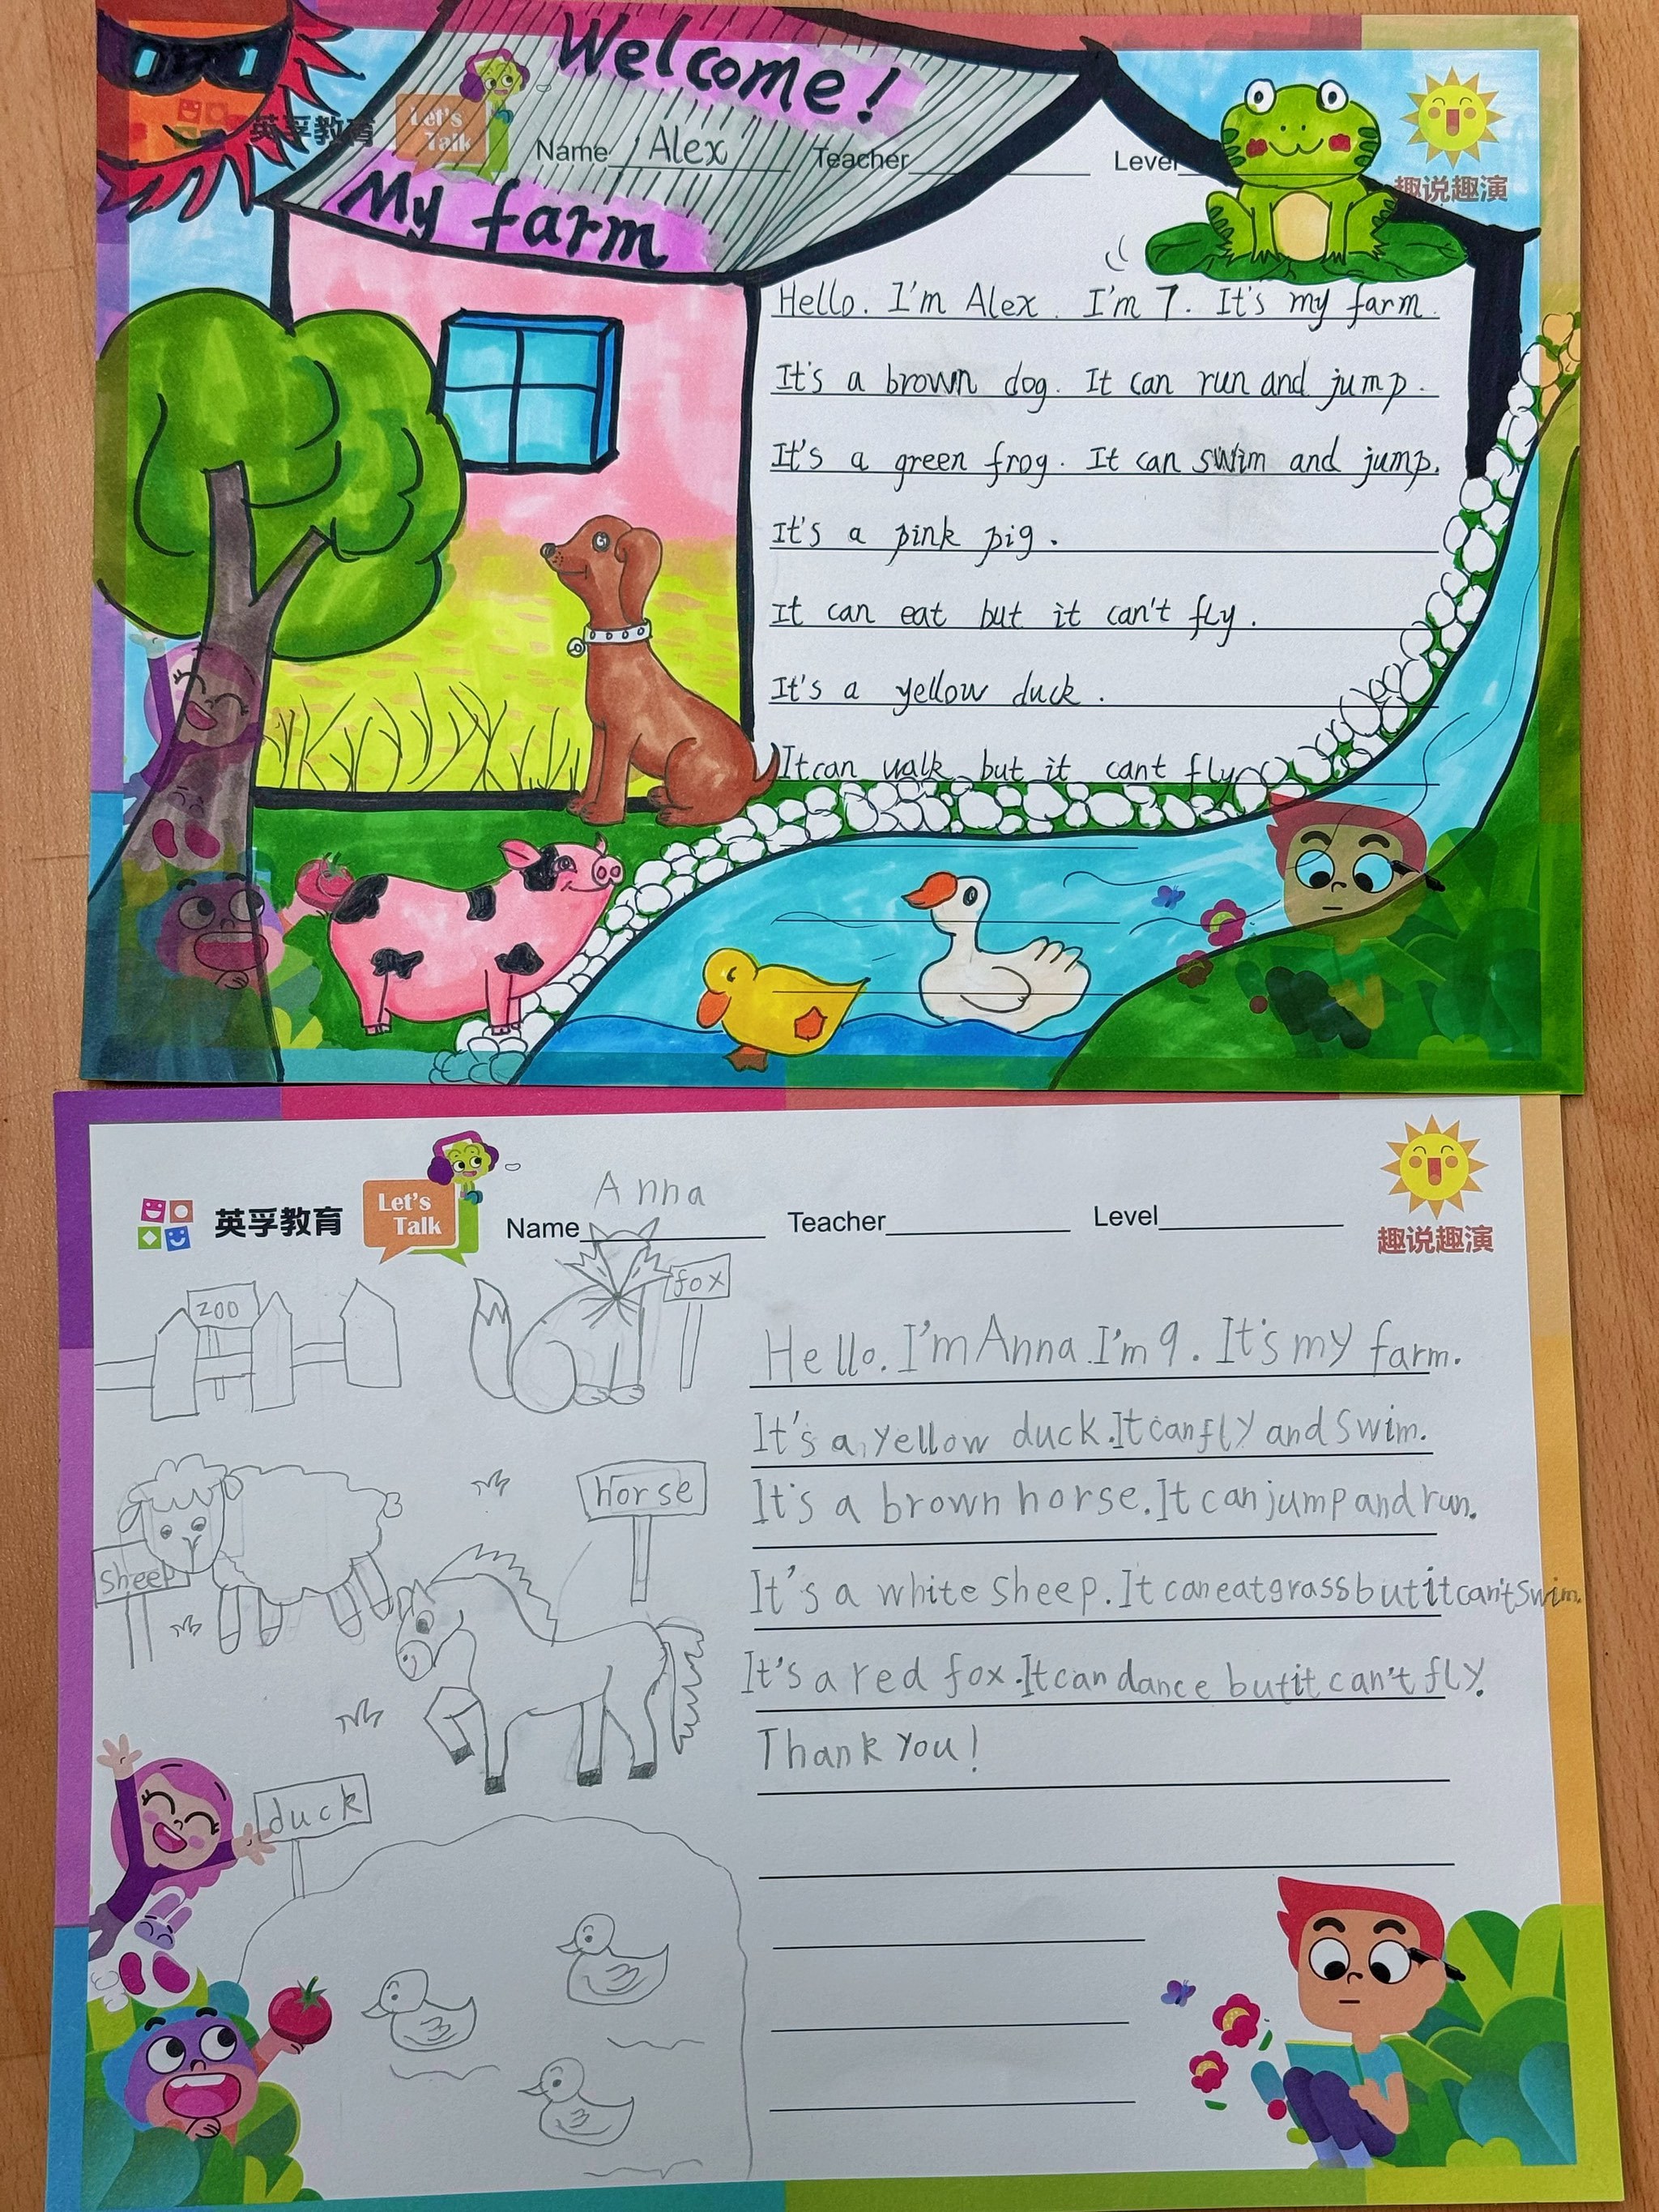 Welcome!
英孚教育
Let's
Talk
Name Alex Teacher Level
趣说趣演
My farm
Hello. I'm Alex. I'm 7. It's my farm.
It's a brown dog. It can run and jump.
It's a green frog. It can swim and jump.
It's a pink pig.
It can eat but it can't fly.
It's a yellow duck.
It can walk but it cant fly
英孚教育
Let's
Talk
Name Anna Teacher Level
趣说趣演
zoo
fox
Hello. I'm Anna. I'm 9. It's my farm.
It's a yellow duck. It can fly and swim.
horse
It's a brown horse. It can jump and run.
sheep
It's a white sheep. It can eat grass but it can't swim.
It's a red fox. It can dance but it can't fly.
Thank you!
duck